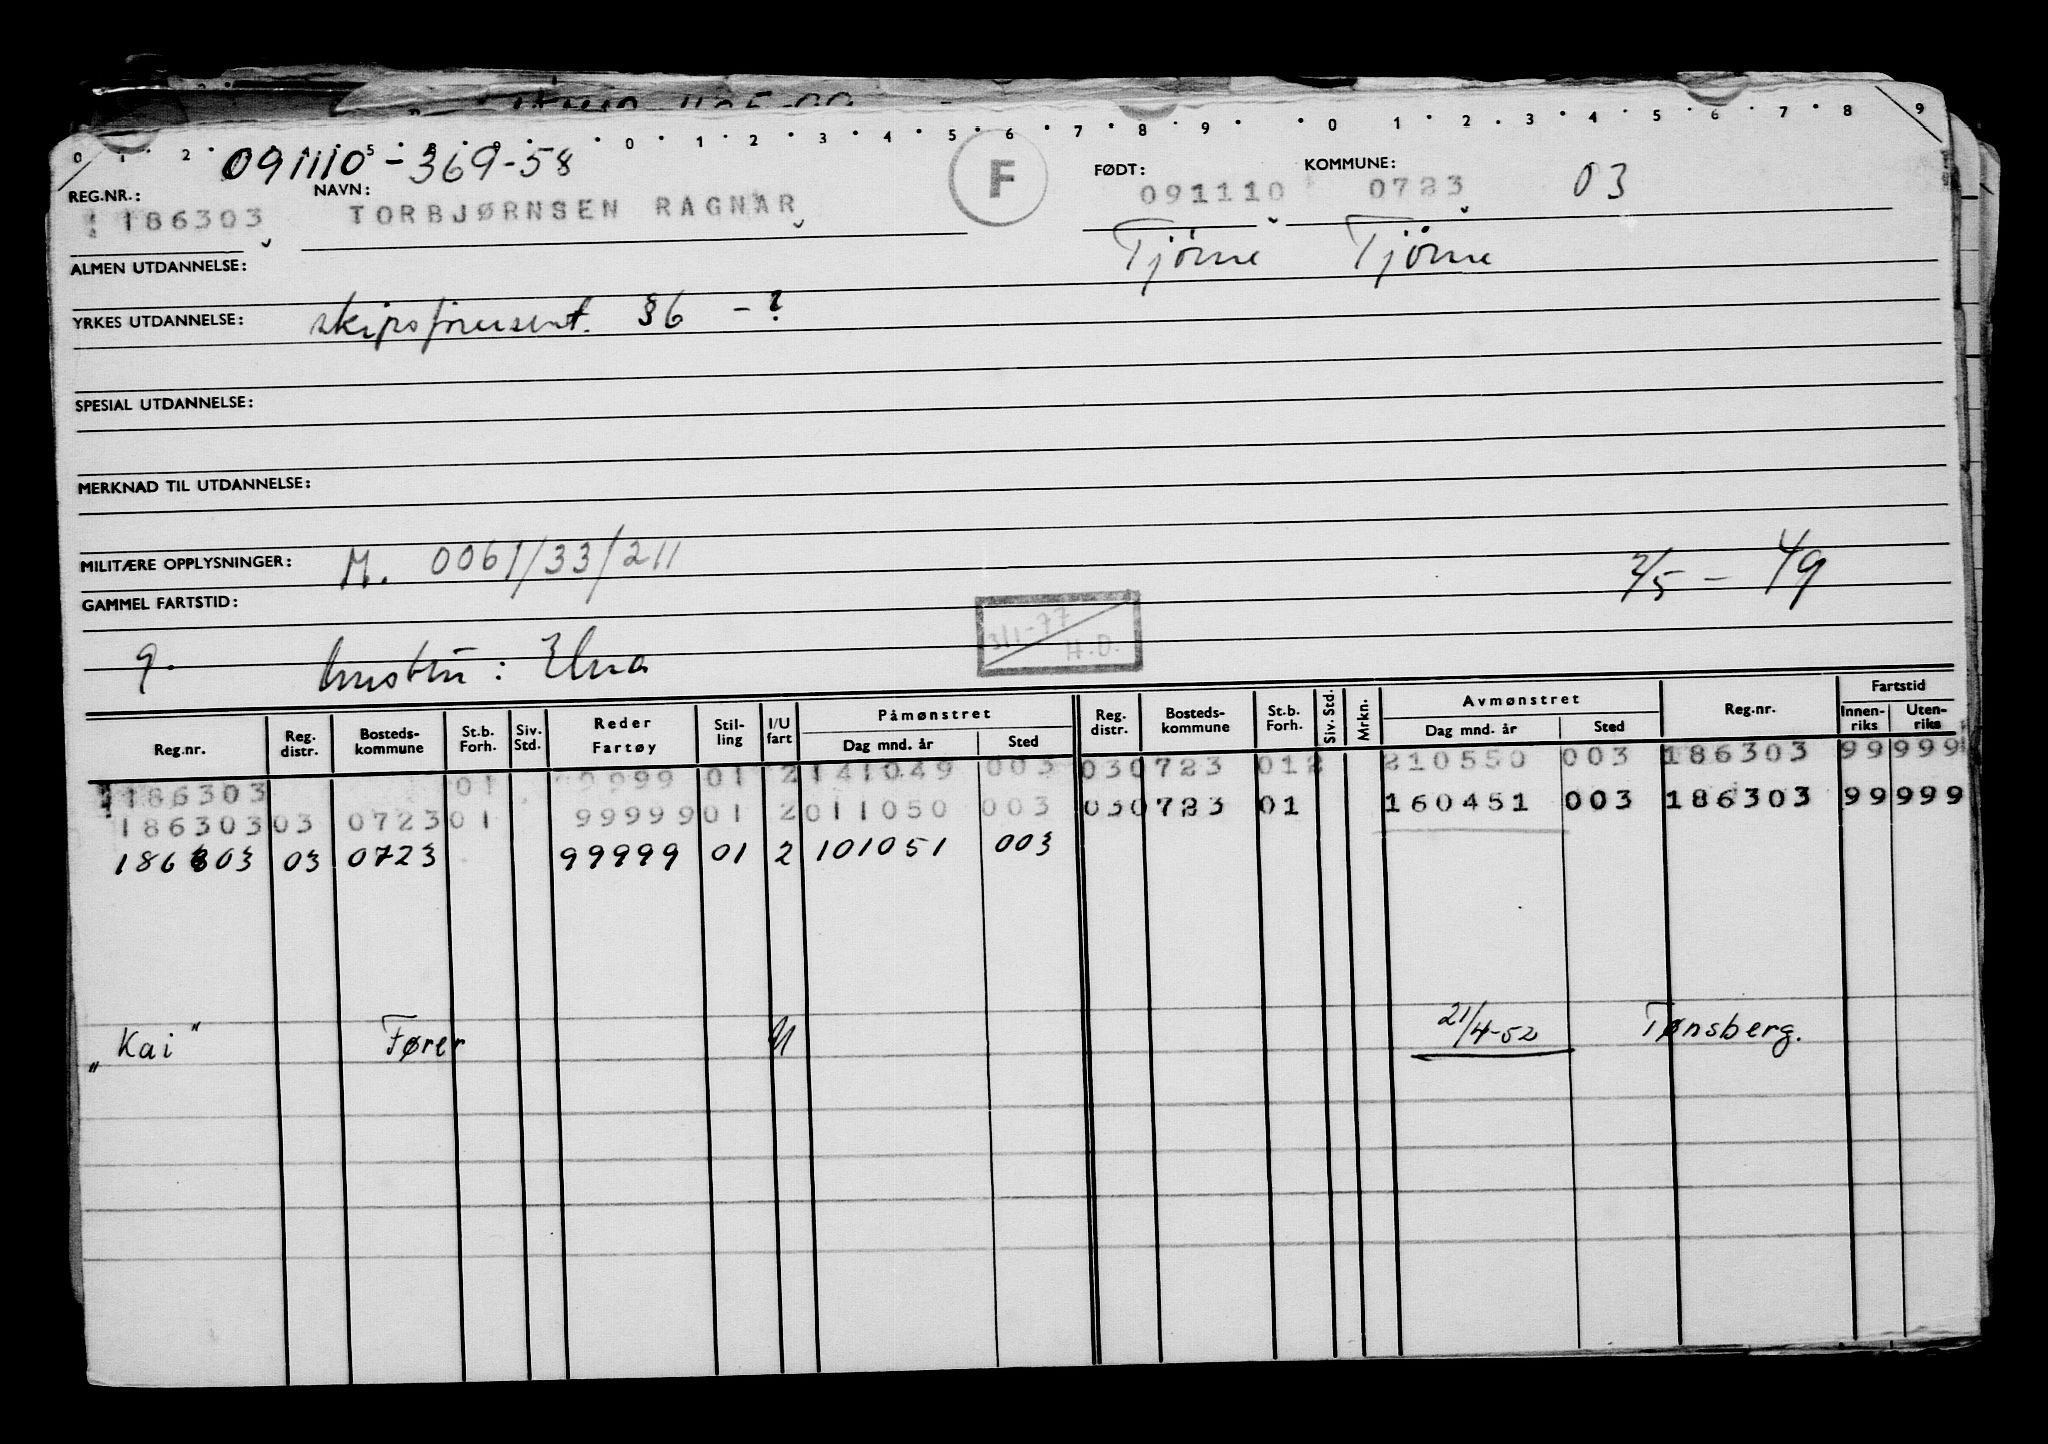 0 1 2 5 0 1 2 3 4 5 6 7 8 9 0 1 2 3 4 5 6 7 8 9
091110-369-58
REG.NR.: NAVN: F FØDT: KOMMUNE:
186303 TORBJØRNSEN RAGNAR 091110 0723 03
Tjøme Tjøme
ALMEN UTDANNELSE:
YRKES UTDANNELSE: skipsførersert. §6 - ?
SPESIAL UTDANNELSE:
MERKNAD TIL UTDANNELSE:
MILITÆRE OPPLYSNINGER: M. 0061/33/211
2/5 - 49
GAMMEL FARTSTID:
3/1-77 H.D.
9. hustru: Elna
Reg.nr. Reg. distr. Bosteds-kommune St.b. Forh. Siv. Std. Reder Fartøy Stil-ling I/U fart Påmønstret Dag mnd. år Sted Reg. distr. Bosteds-kommune St.b. Forh. Siv. Std. Mrkn. Avmønstret Dag mnd. år Sted Reg.nr. Fartstid Innen-riks Uten-riks
186303 01 9999 01 2 141049 003 03 0723 01 2 210550 003 186303 99 999
186303 03 0723 01 99999 01 2 011050 003 03 0723 01 160451 003 186303 99 999
186303 03 0723 99999 01 2 101051 003
"Kai" Fører U 21/4-52 Tønsberg.